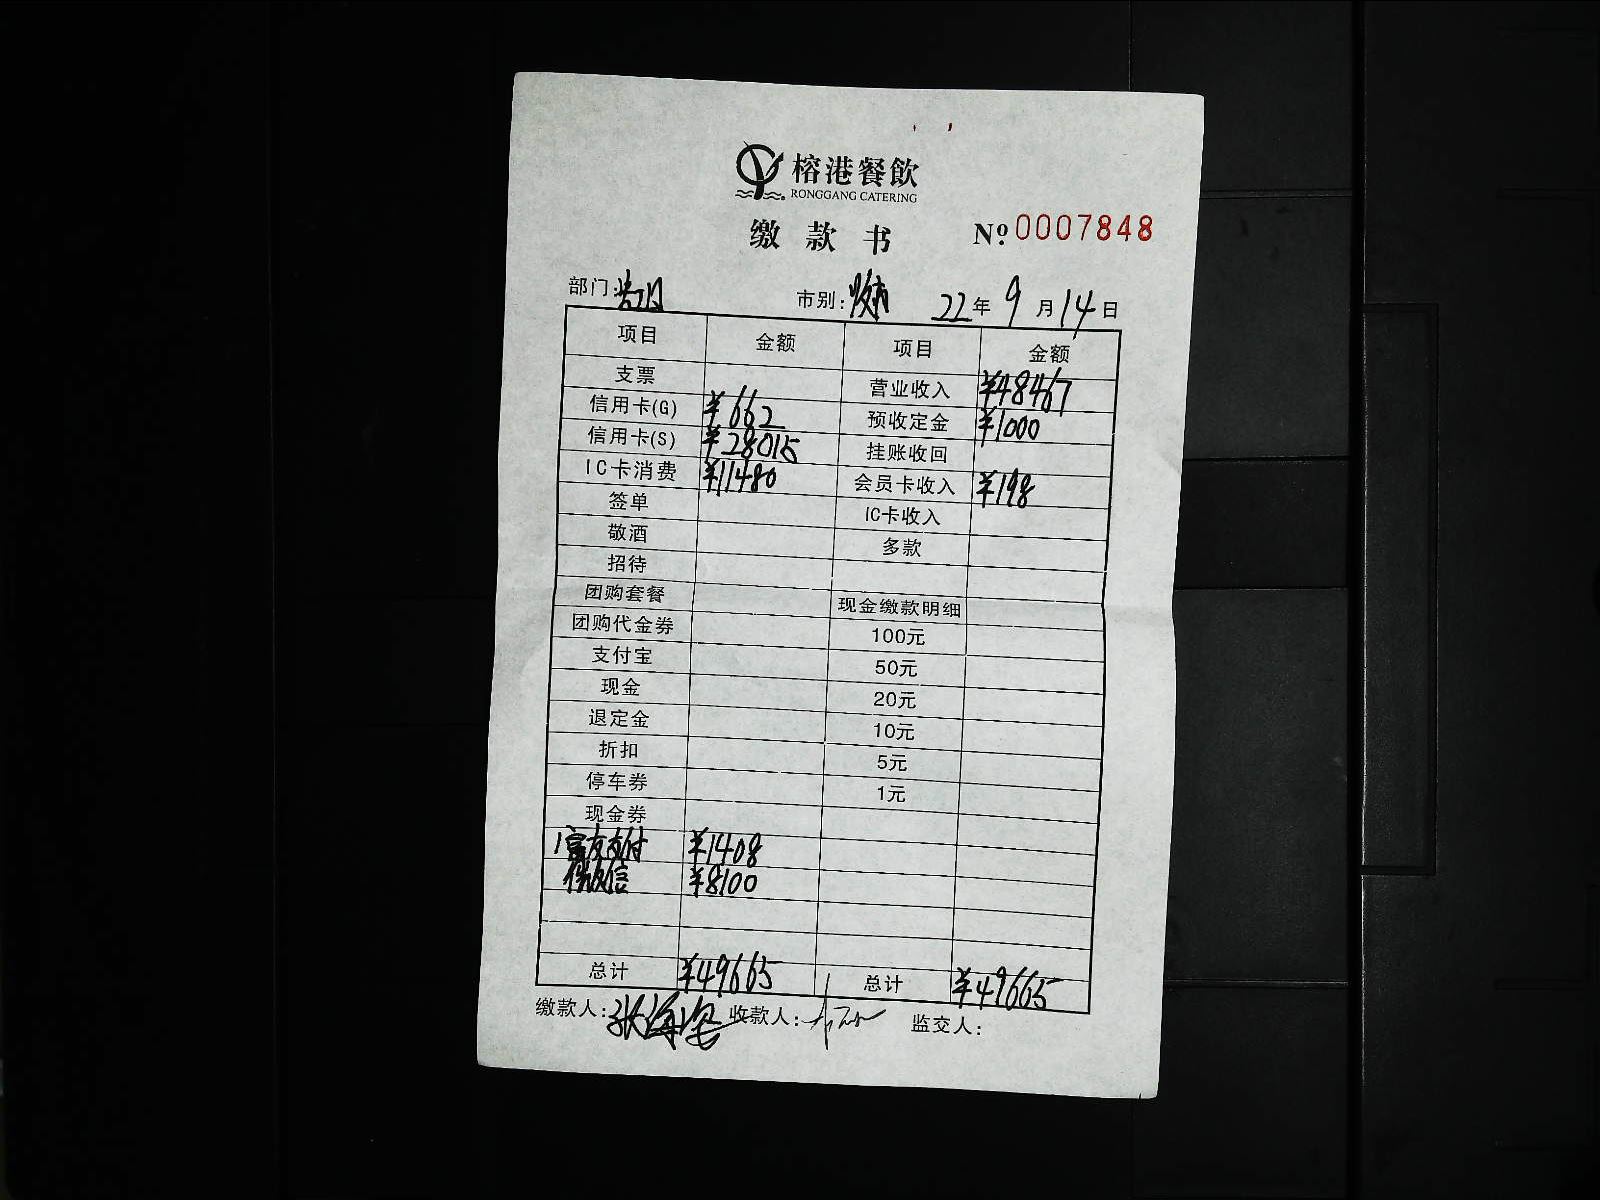 榕港餐飲
RONGGANG CATERING
缴款书 Nº 0007848
部门: 市别: 22年9月14日
项目 金额 项目 金额
支票 营业收入 ¥48467
信用卡(G) ¥662 预收定金 ¥1000
信用卡(S) ¥28015 挂账收回
IC卡消费 ¥11480 会员卡收入 ¥198
签单 IC卡收入
敬酒 多款
招待
团购套餐 现金缴款明细
团购代金券 100元
支付宝 50元
现金 20元
退定金 10元
折扣 5元
停车券 1元
现金券
支付 ¥1408
微信 ¥8100
总计 ¥49665 总计 ¥49665
缴款人: 收款人: 监交人: